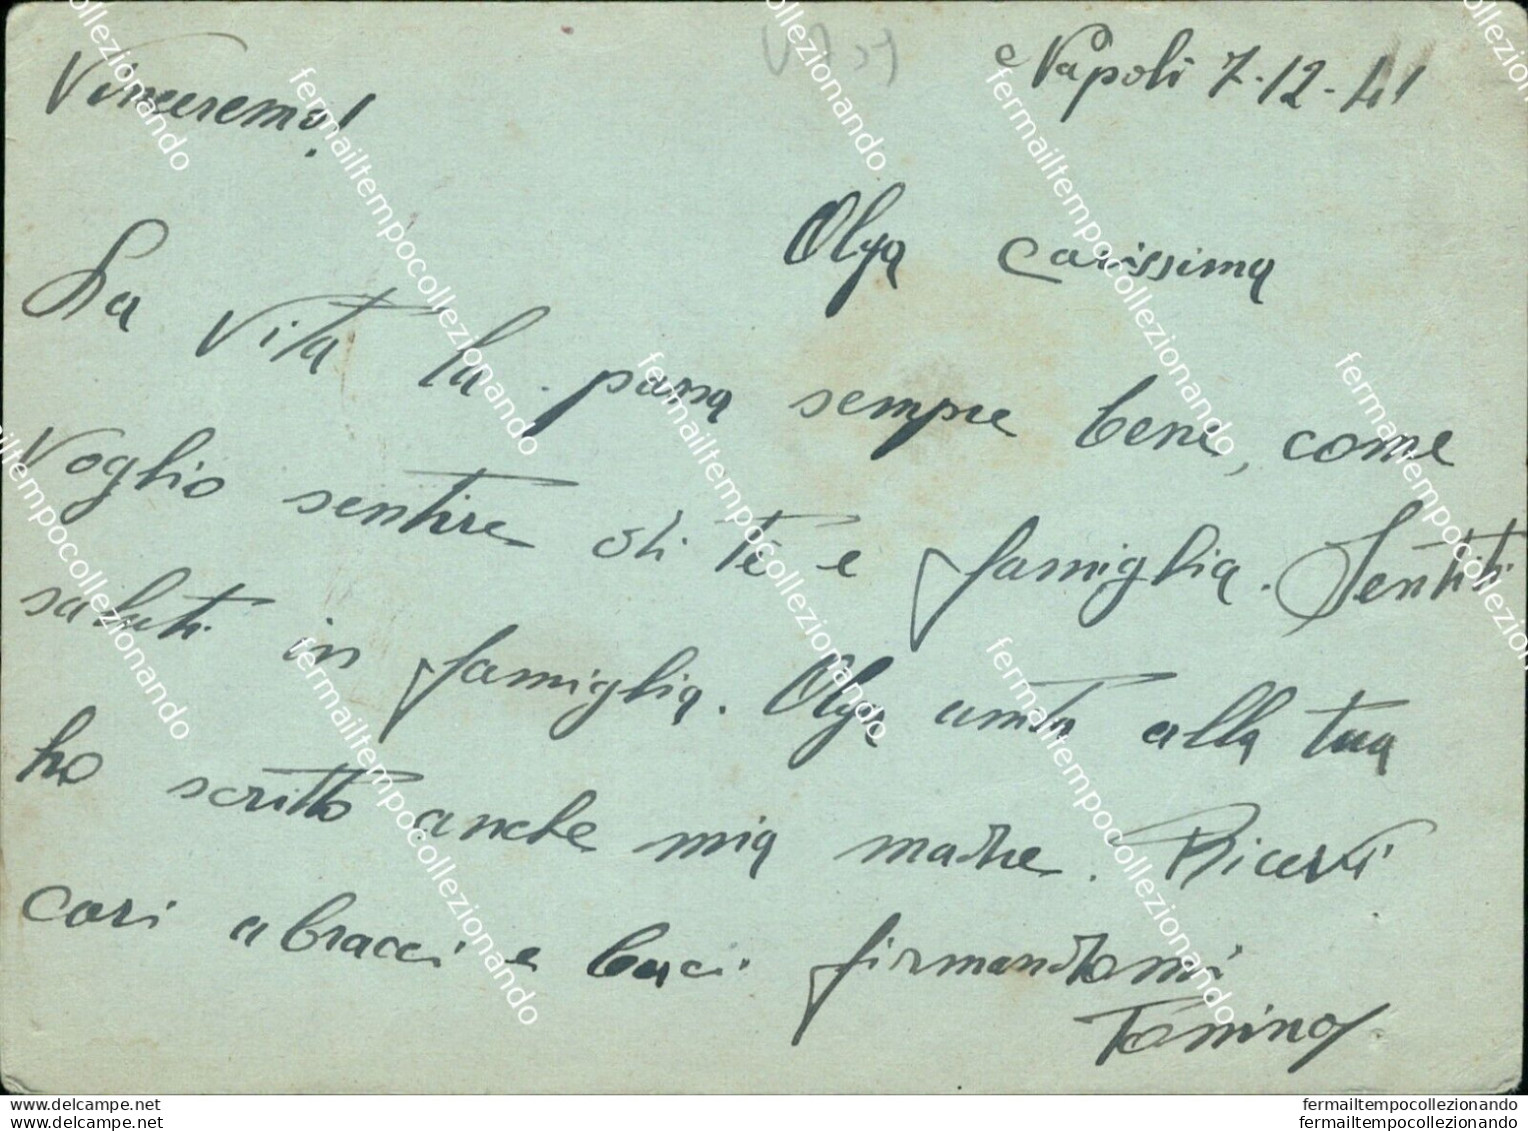 Vinceremo!
Napoli 7-12-41
Olga carissima
La vita la passa sempre bene, come
voglio sentire di te e famiglia. Sentiti
saluti in famiglia. Olga unita alla tua
ho scritto anche mia madre. Ricevi
cari abracci e baci firmandomi
Tonino
www.delcampe.net
www.delcampe.net
fermailtempocollezionando
fermailtempocollezionando